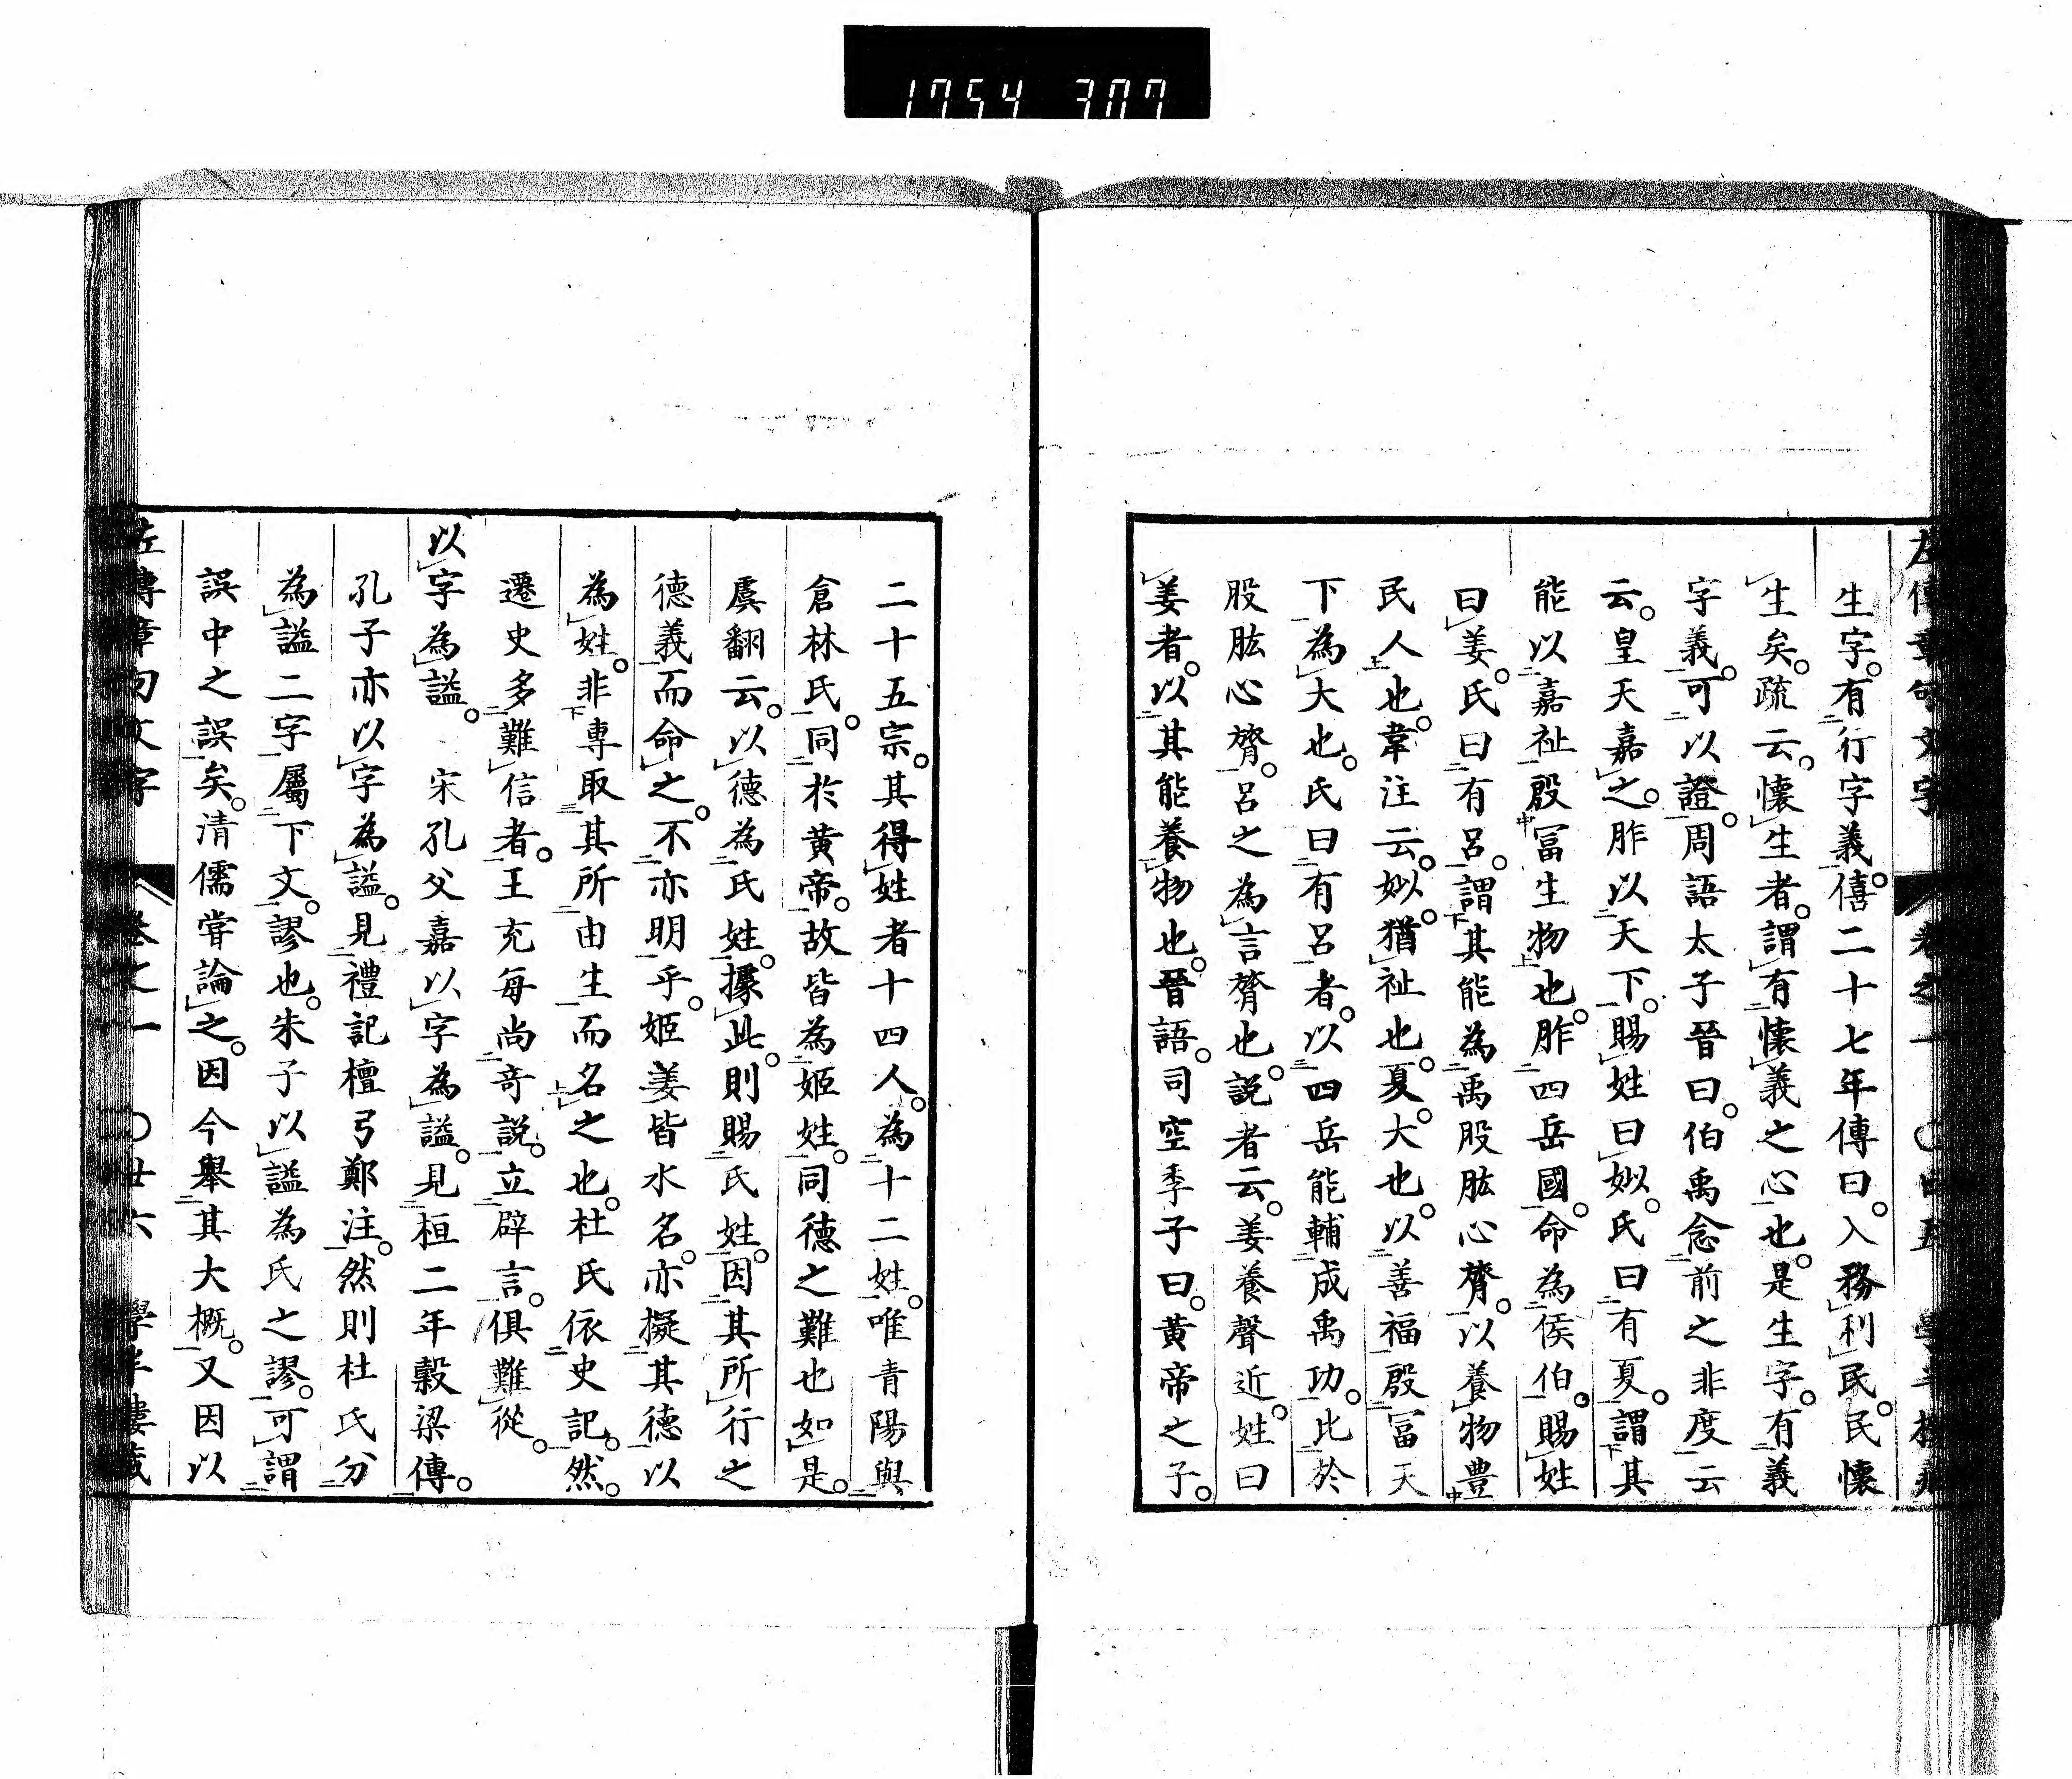 1754 307
生字。有行字義。僖二十七年傳曰。入務利民。民懷
生矣。疏云。懷生者。謂有懷義之心也。是生字。有義
字義。可以證。周語太子晉曰。伯禹念前之非度云
云。皇天嘉之。胙以天下。賜姓曰姒。氏曰有夏。謂其
能以嘉祉殷冨生物也。胙四岳國。命為侯伯。賜姓
曰姜。氏曰有呂。謂其能為禹股肱心膂。以養物豊
民人也。韋注云。姒。猶祉也。夏。大也。以善福殷冨天
下為大也。氏曰有呂者。以四岳能輔成禹功。比於
股肱心膂。呂之為言膂也。説者云。姜養聲近。姓曰
姜者。以其能養物也。晉語。司空季子曰。黄帝之子。
二十五宗。其得姓者十四人。為十二姓。唯青陽與
倉林氏。同於黄帝。故皆為姬姓。同德之難也如是。
虞翻云。以德為氏姓。據此。則賜氏姓。因其所行之
德義而命之。不亦明乎。姬姜皆水名。亦擬其德以
為姓。非專取其所由生而名之也。杜氏依史記。然。
遷史多難信者。王充每尚奇説。立辟言。俱難從。
以字為謚。 宋孔父嘉以字為謚。見桓二年穀梁傳。
孔子亦以字為謚。見禮記檀弓鄭注。然則杜氏分
為謚二字屬下文。謬也。朱子以謚為氏之謬。可謂
誤中之誤矣。清儒甞論之。因今舉其大概。又因以
左傳章句文字 卷之一 〇廿六 學半樓藏